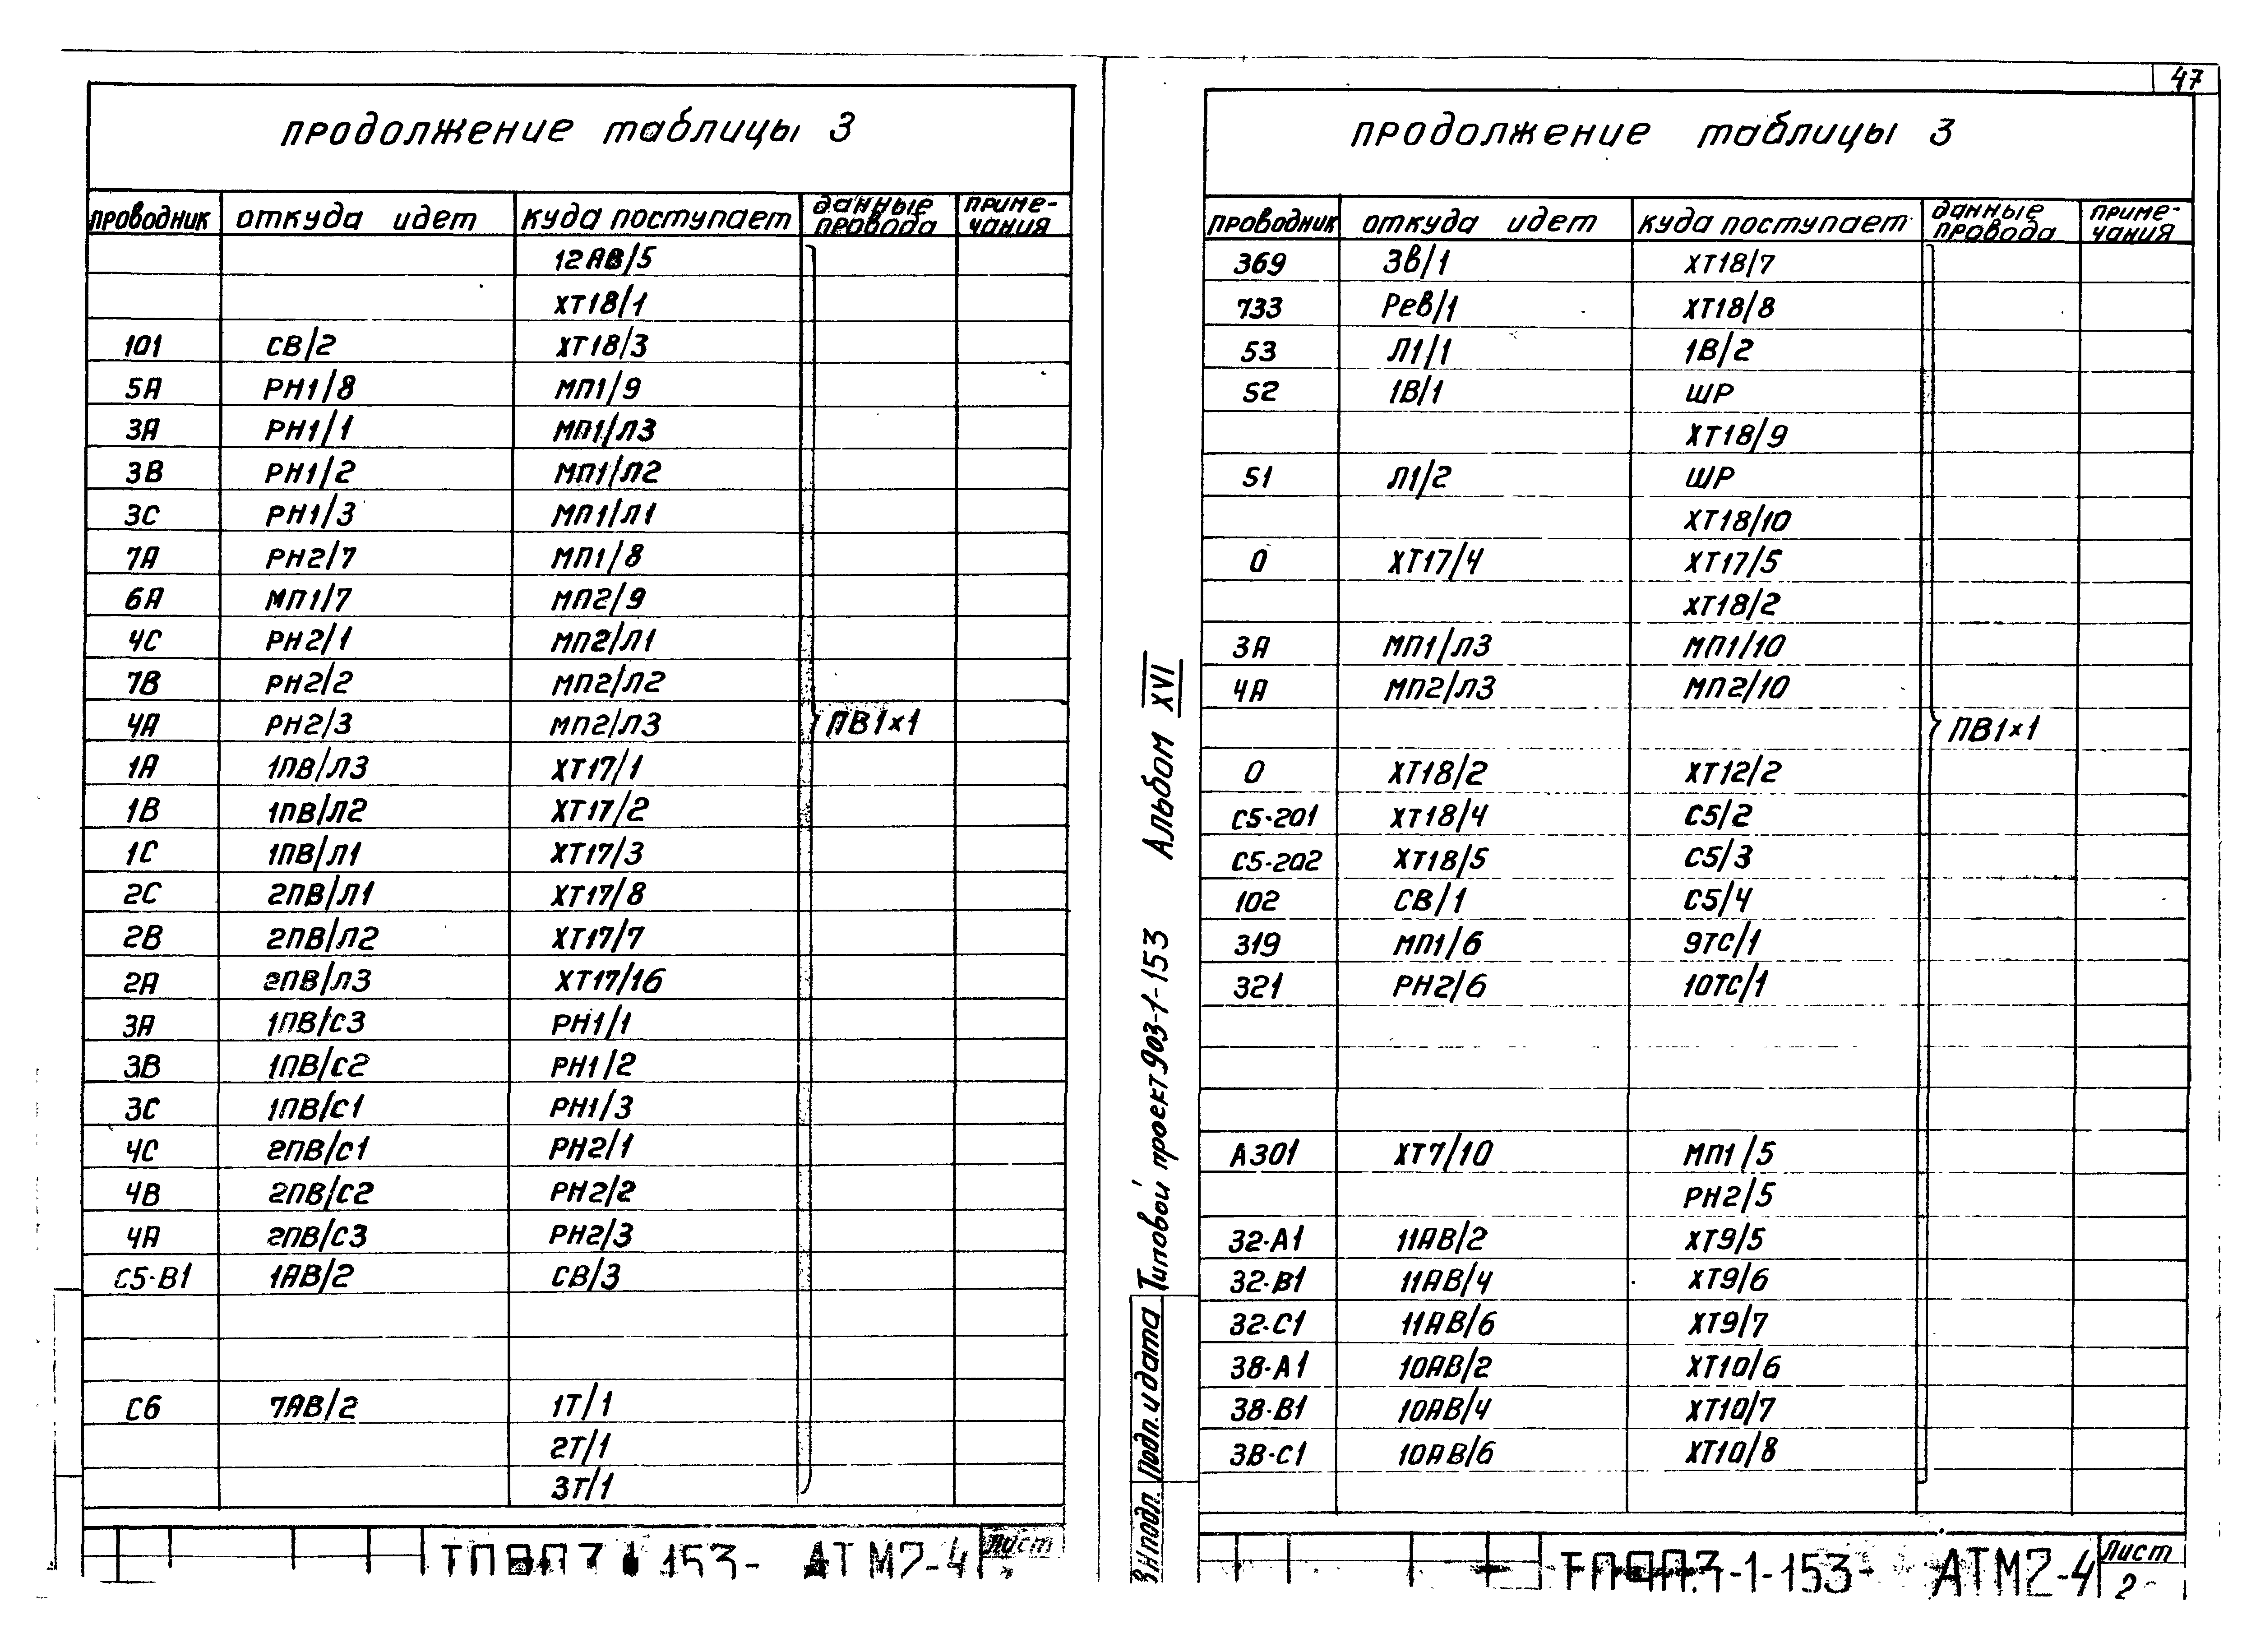 47
продолжение таблицы 3
проводник откуда идет куда поступает данные провода приме-чания
12АВ/5
ХТ18/1
101 СВ/2 ХТ18/3
5А РН1/8 МП1/9
3А РН1/1 МП1/Л3
3В РН1/2 МП1/Л2
3С РН1/3 МП1/Л1
7А РН2/7 МП1/8
6А МП1/7 МП2/9
4С РН2/1 МП2/Л1
7В РН2/2 МП2/Л2
4А РН2/3 МП2/Л3 ПВ1×1
1А 1ПВ/Л3 ХТ17/1
1В 1ПВ/Л2 ХТ17/2
1С 1ПВ/Л1 ХТ17/3
2С 2ПВ/Л1 ХТ17/8
2В 2ПВ/Л2 ХТ17/7
2А 2ПВ/Л3 ХТ17/16
3А 1ПВ/С3 РН1/1
3В 1ПВ/С2 РН1/2
3С 1ПВ/С1 РН1/3
4С 2ПВ/С1 РН2/1
4В 2ПВ/С2 РН2/2
4А 2ПВ/С3 РН2/3
С5-В1 1АВ/2 СВ/3
С6 7АВ/2 1Т/1
2Т/1
3Т/1
153- АТМ2-4 Лист
Альбом XVI
Типовой проект 903-1-153
Подп. и дата
подл.
продолжение таблицы 3
проводник откуда идет куда поступает данные провода приме-чания
369 Зв/1 ХТ18/7
733 Рев/1 ХТ18/8
53 Л1/1 1В/2
52 1В/1 ШР
ХТ18/9
51 Л1/2 ШР
ХТ18/10
0 ХТ17/4 ХТ17/5
ХТ18/2
3А МП1/Л3 МП1/10
4А МП2/Л3 МП2/10
ПВ1×1
0 ХТ18/2 ХТ12/2
С5-201 ХТ18/4 С5/2
С5-202 ХТ18/5 С5/3
102 СВ/1 С5/4
319 МП1/6 9ТС/1
321 РН2/6 10ТС/1
А301 ХТ7/10 МП1/5
РН2/5
32-А1 11АВ/2 ХТ9/5
32-В1 11АВ/4 ХТ9/6
32-С1 11АВ/6 ХТ9/7
38-А1 10АВ/2 ХТ10/6
38-В1 10АВ/4 ХТ10/7
3В-С1 10АВ/6 ХТ10/8
-1-153- АТМ2-4 Лист
2